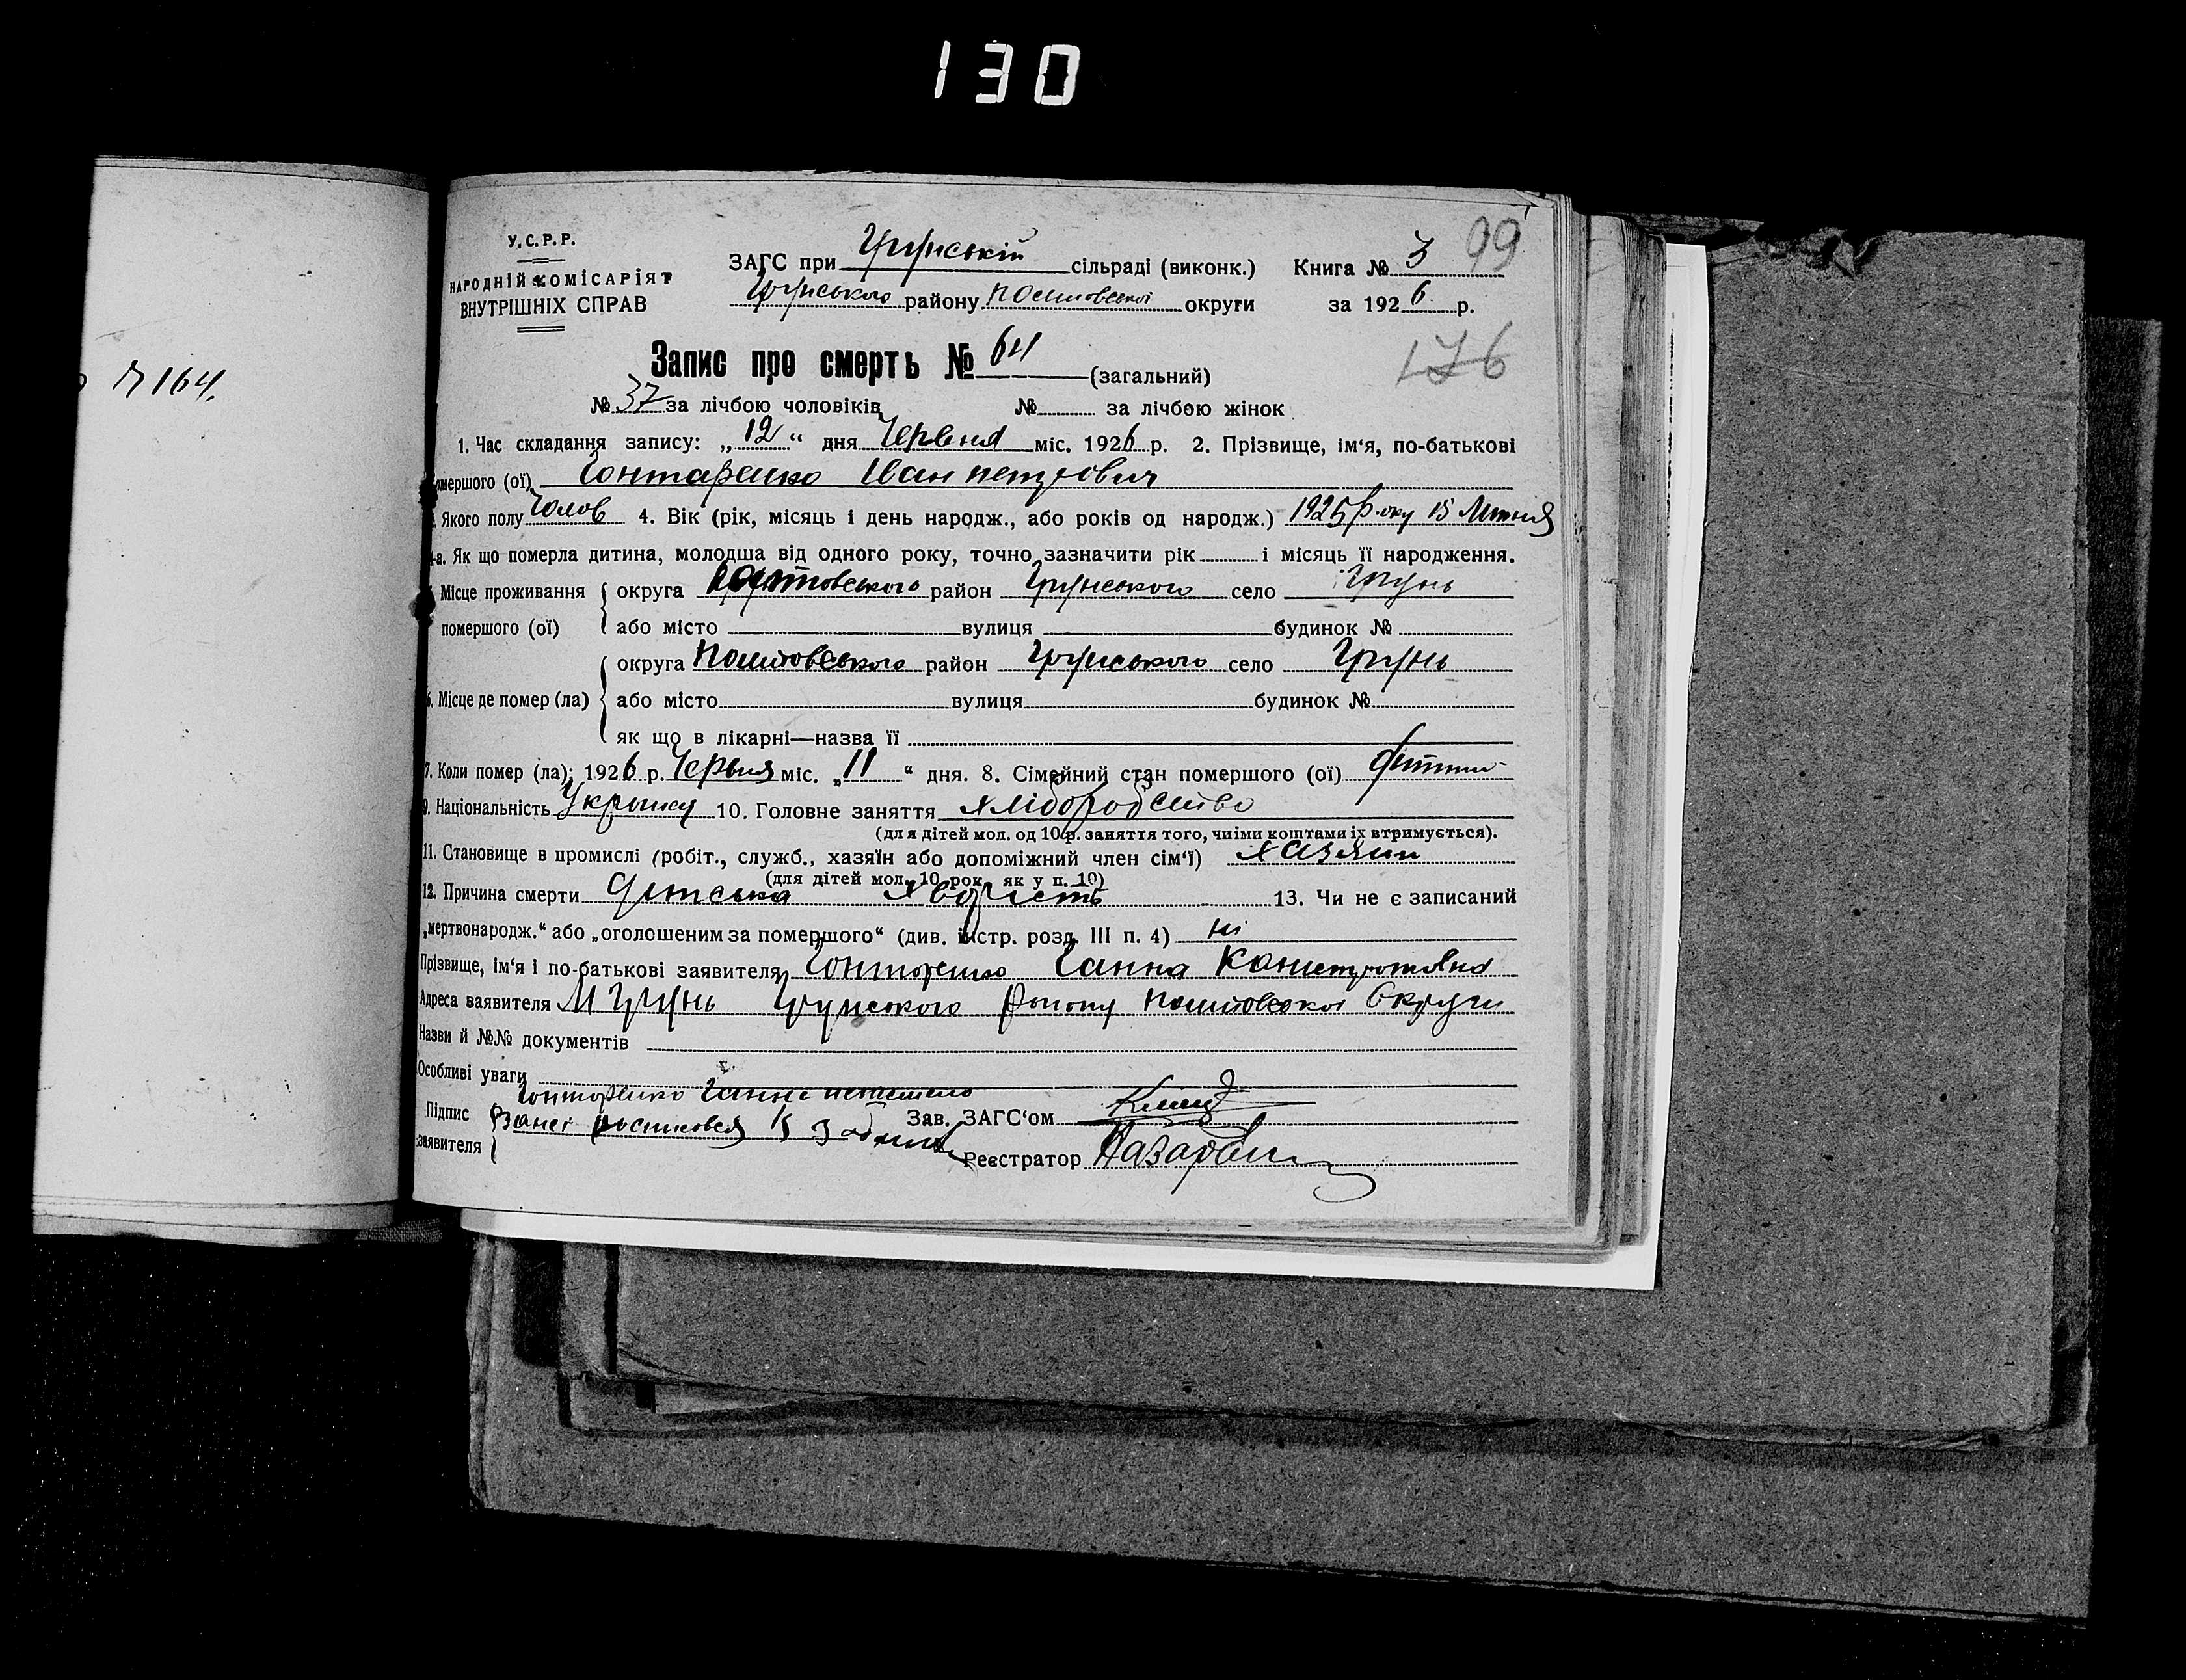 130
№ 164.
У.С.Р.Р.
НАРОДНІЙ КОМІСАРІЯТ
ВНУТРІШНІХ СПРАВ
ЗАГС при Грунській сільраді (виконк.) Книга № 3 99
Грунського району Полтовської округи за 1926 р.
176
Запис про смерть № 64 (загальний)
№ 37 за лічбою чоловіків № за лічбою жінок
1. Час складання запису: „12“ дня Червня міс. 1926 р. 2. Прізвище, ім‘я, по-батькові
помершого (ої) Гонтаренко Іван петрович
Якого полу Чолов 4. Вік (рік, місяць і день народж., або років од народж.) 1925 року 15
4-а. Як що померла дитина, молодша від одного року, точно зазначити рік і місяць її народження.
Місце проживання округа район Грунського село Грунь
помершого (ої) або місто вулиця будинок №
округа Полтовського район Грунського село Грунь
6. Місце де помер (ла) або місто вулиця будинок №
як що в лікарні—назва її
7. Коли помер (ла): 1926 р. Червня міс. „11“ дня. 8. Сімейний стан помершого (ої)
9. Національність 10. Головне заняття хліборобство
(для дітей мол. од 10 р. заняття того, чиїми коштами їх втримується).
11. Становище в промислі (робіт., служб., хазяїн або допоміжний член сім‘ї) хазяин
(для дітей мол. 10 рок. як у п. 10)
12. Причина смерти Дитська хворість 13. Чи не є записаний
„мертвонародж.“ або „оголошеним за помершого“ (див. інстр. розд. III п. 4) ні
Прізвище, ім‘я і по-батькові заявителя Гонтаренко Ганна
Адреса заявителя М Грунь Грунського Району Полтовської Округи
Назви й №№ документів
Особливі уваги
Гонтаренко Ганна
Підпис Зав. ЗАГС‘ом
заявителя Реєстратор